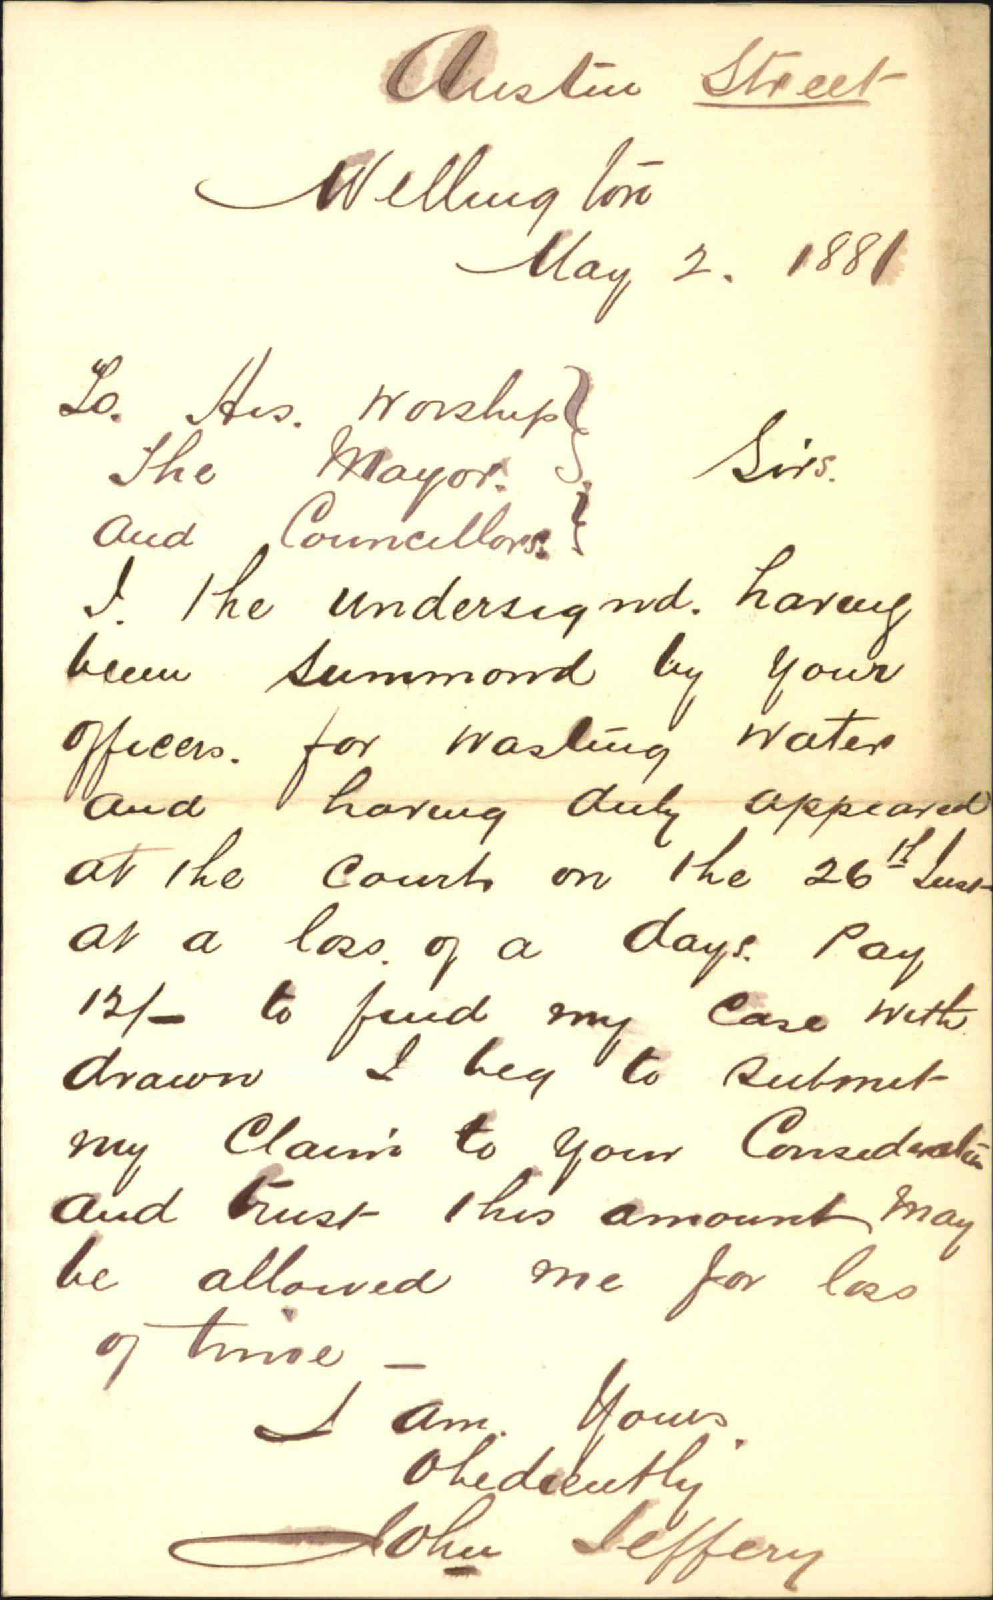 Austin Street
Wellington
May 2. 1881
To. His. Worship
The Mayor. Sirs.
and Councillors.
I. the undersignd. having
been summond by your
officers. for wasting water
and having duly appeared
at the court on the 26th Inst
at a loss. of a days. Pay
12/- to find my case with
drawn I beg to submit
my Claim to your Consideration
and trust this amount May
be allowed me for loss
of time -
I am. Yours.
Obediently
John Jeffery